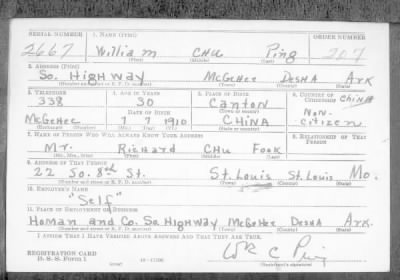 SERIAL NUMBER 1. NAME (Print) ORDER NUMBER
2667 William CHU Ping 207
(First) (Middle) (Last)
2. ADDRESS (Print)
So. Highway McGeHee DesHA Ark
(Number and street or R. F. D. number) (Town) (County) (State)
3. TELEPHONE 4. AGE IN YEARS 5. PLACE OF BIRTH 6. COUNTRY OF CITIZENSHIP
338 30 Canton China
DATE OF BIRTH (Town or county)
McGeHee 7 7 1910 CHINA Non-citizen
(Exchange) (Number) (Mo.) (Day) (Yr.) (State or country)
7. NAME OF PERSON WHO WILL ALWAYS KNOW YOUR ADDRESS 8. RELATIONSHIP OF THAT PERSON
Mr. Richard CHu Fook
(Mr., Mrs., Miss) (First) (Middle) (Last)
9. ADDRESS OF THAT PERSON
22 So. 8th St. St. Louis St. Louis Mo.
(Number and street or R. F. D. number) (Town) (County) (State)
10. EMPLOYER'S NAME
"Self"
11. PLACE OF EMPLOYMENT OR BUSINESS
Homan and Co. So. Highway McGeHee DesHA Ark.
(Number and street or R. F. D. number) (Town) (County) (State)
I AFFIRM THAT I HAVE VERIFIED ABOVE ANSWERS AND THAT THEY ARE TRUE.
REGISTRATION CARD
D. S. S. Form 1 Wm C Ping
(Registrant's signature)